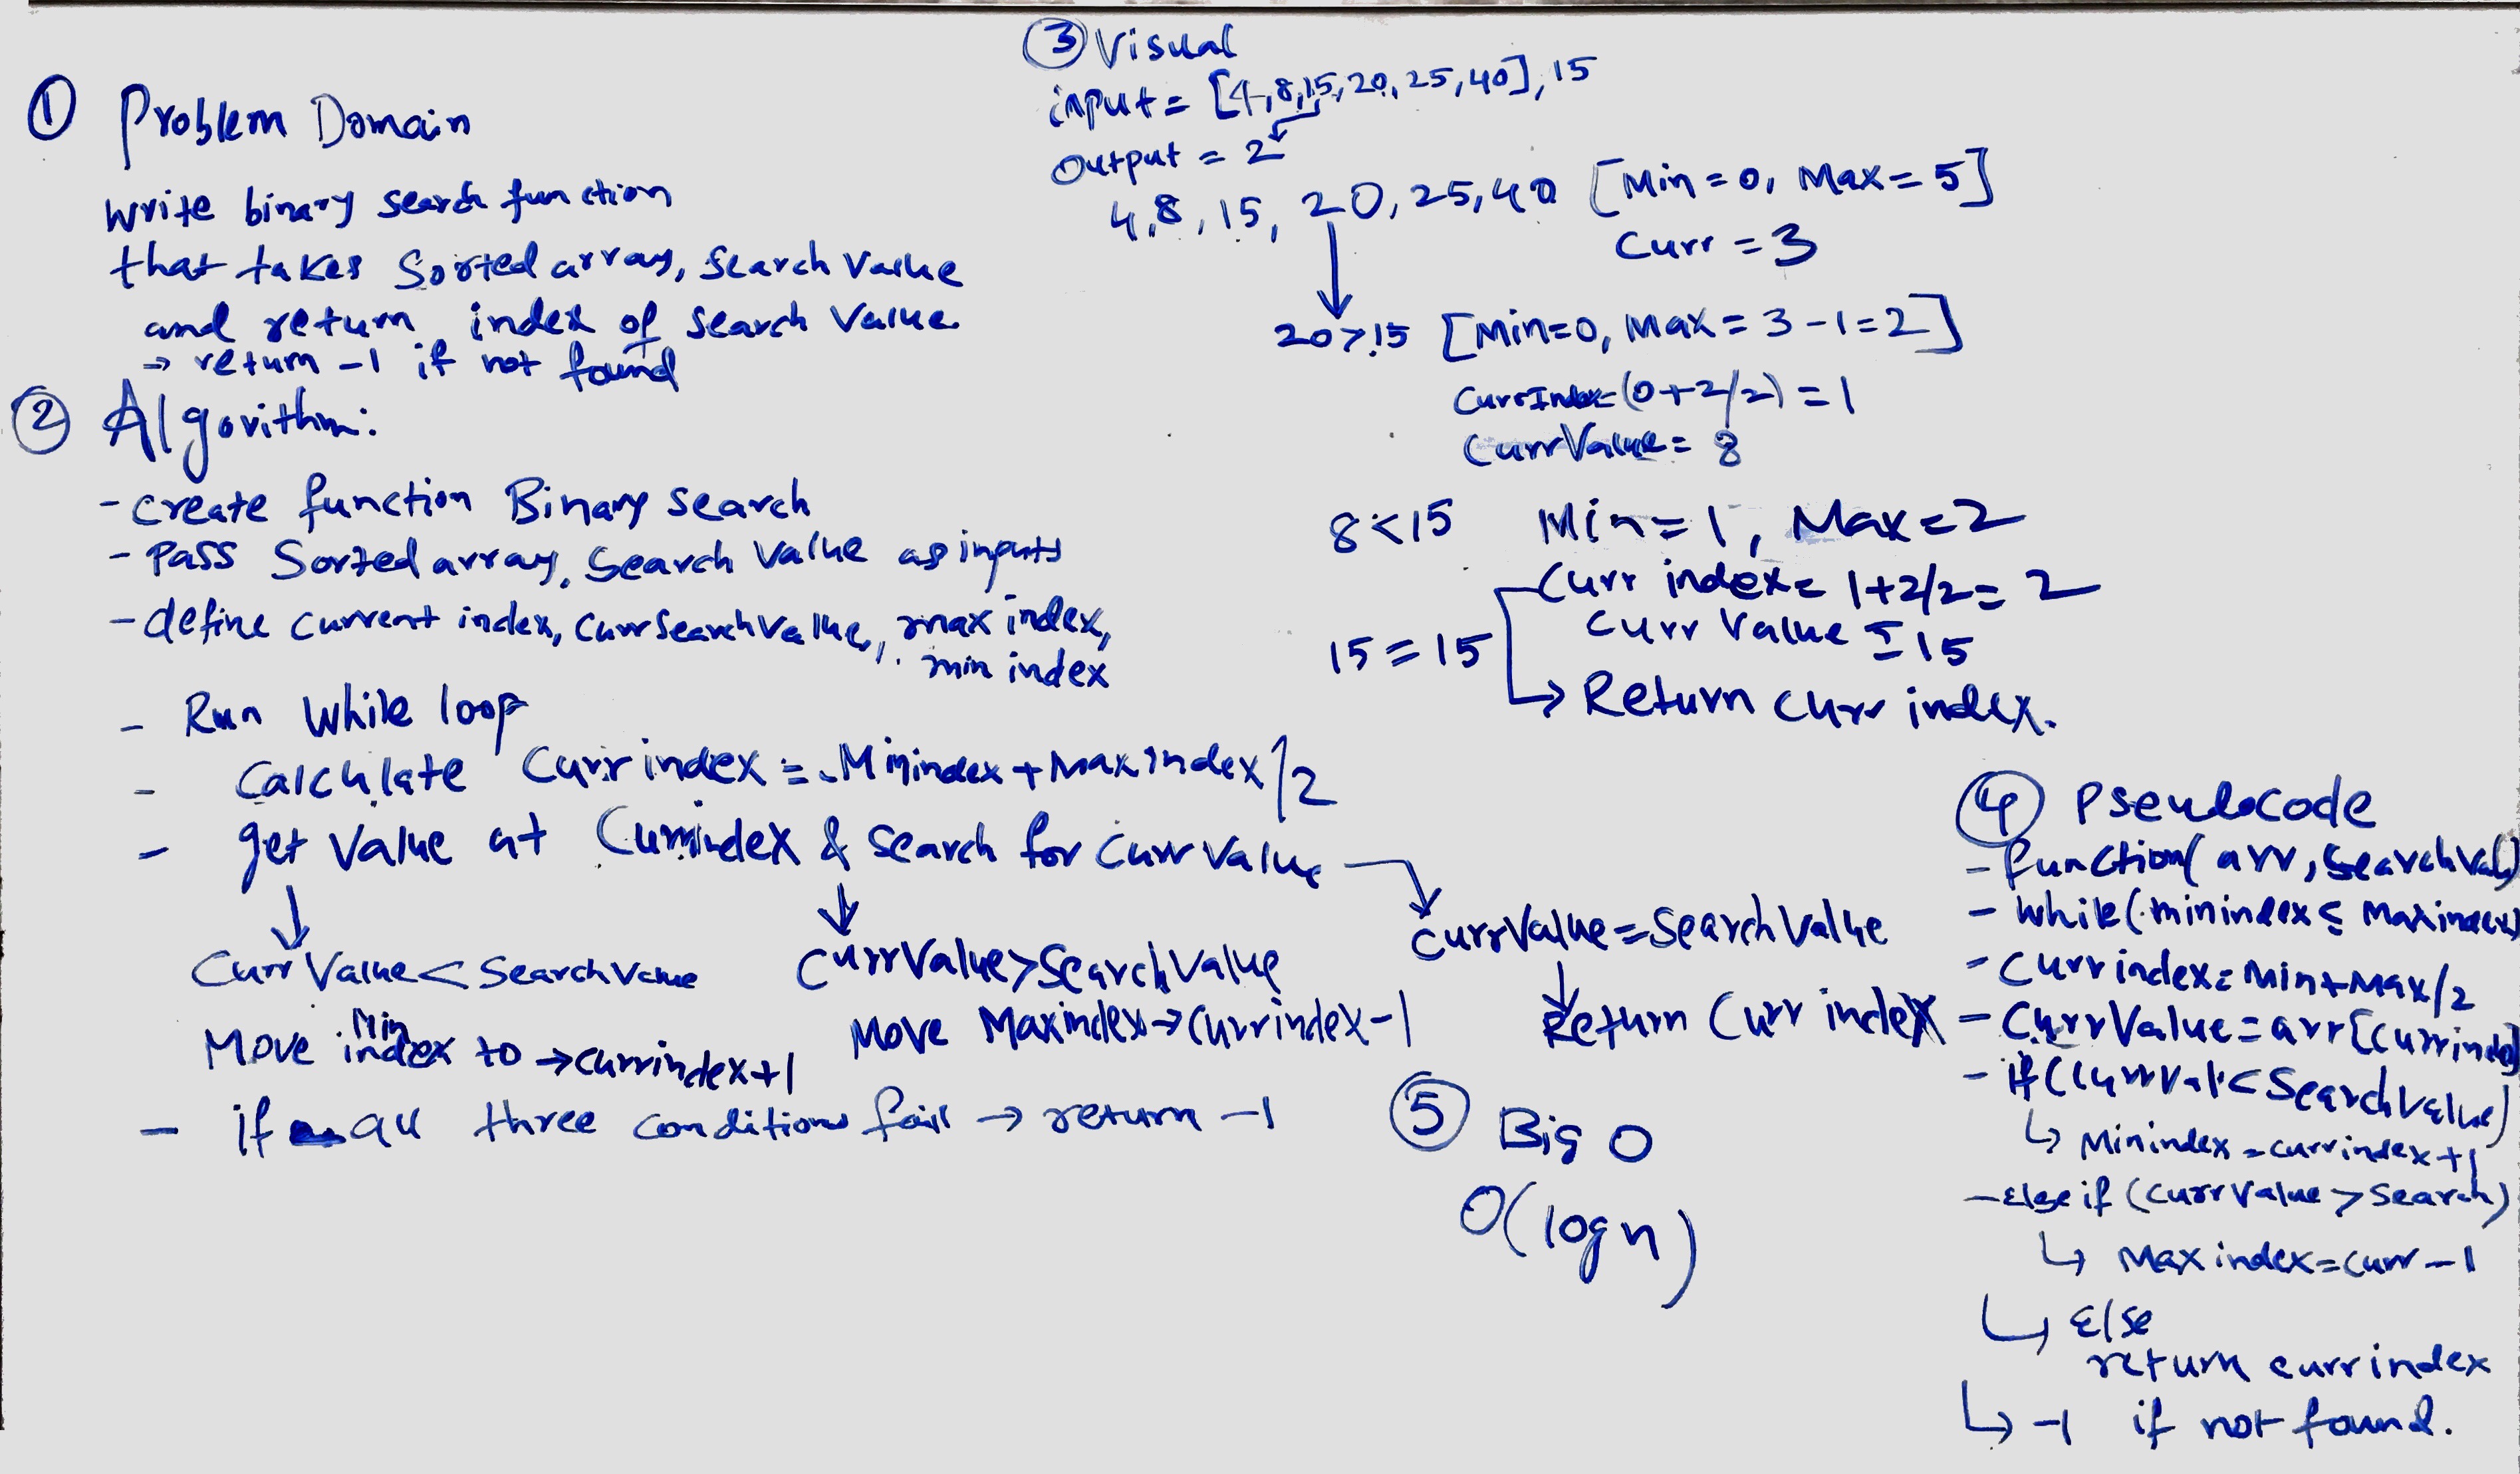 ① Problem Domain
Write binary search function
that takes Sorted array, Search Value
and return index of search Value
⇒ return -1 if not found
② Algorithm:
- create function Binary search
- Pass Sorted array, Search Value as inputs
- define current index, CurrSearchValue, max index,
min index
- Run While loop
- Calculate Currindex = Minindex + Maxindex/2
- get Value at Currindex & search for Curr Value
CurrValue < SearchValue
Move Min index to → currindex+1
CurrValue > SearchValue
Move Maxindex → Currindex-1
CurrValue = SearchValue
Return Curr index
- if all three conditions fail → return -1
③ Visual
input = [4,8,15,20,25,40], 15
Output = 2
4,8,15,20,25,40 [Min=0, Max=5]
Curr = 3
20>15 [Min=0, Max=3-1=2]
CurrIndex=(0+2/2)=1
CurrValue= 8
8<15 Min=1, Max=2
Curr index= 1+2/2= 2
Curr Value = 15
15=15
→ Return curr index.
④ Pseudocode
- function(arr, SearchVal)
- While(minindex ≤ Maxindex)
- Currindex=Min+Max/2
- CurrValue=arr[Currindex]
- if(CurrVal<SearchValue)
↳ Minindex=currindex+1
- Else if (CurrValue > Search)
↳ Max index=curr-1
↳ Else
return currindex
↳ -1 if not found.
⑤ Big O
O(log n)